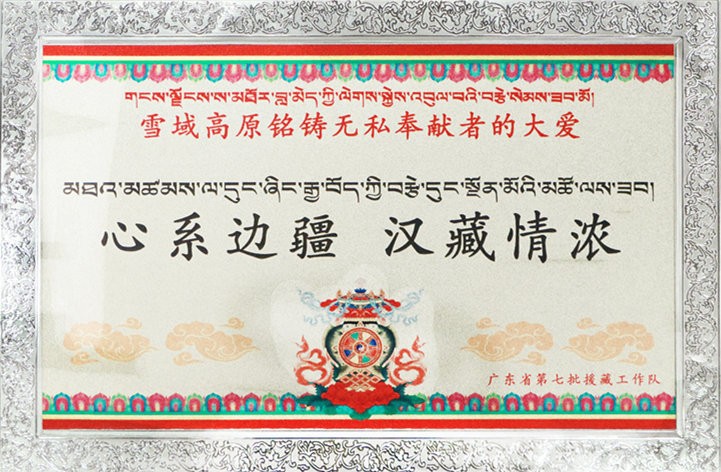 གངས་ལྗོངས་ས་མཐོར་བླ་མེད་ཀྱི་ལེགས་སྐྱེས་འབུལ་བའི་བརྩེ་སེམས་ཟབ་མོ།
雪域高原铭铸无私奉献者的大爱
མཐའ་མཚམས་ལ་དུང་ཞིང་རྒྱ་བོད་ཀྱི་བརྩེ་དུང་སྔོན་མོའི་མཚོ་ལས་ཟབ།
心系边疆 汉藏情浓
广东省第七批援藏工作队